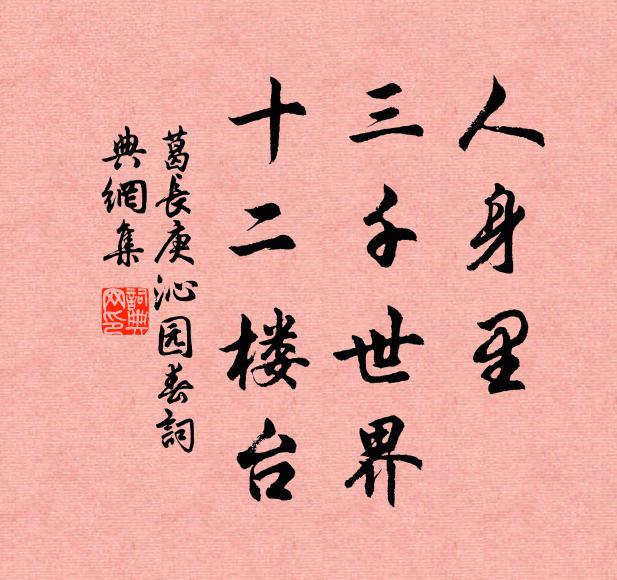 人身里
三千世界
十二楼台
葛長庚沁园春詞
典網集
詞典网印